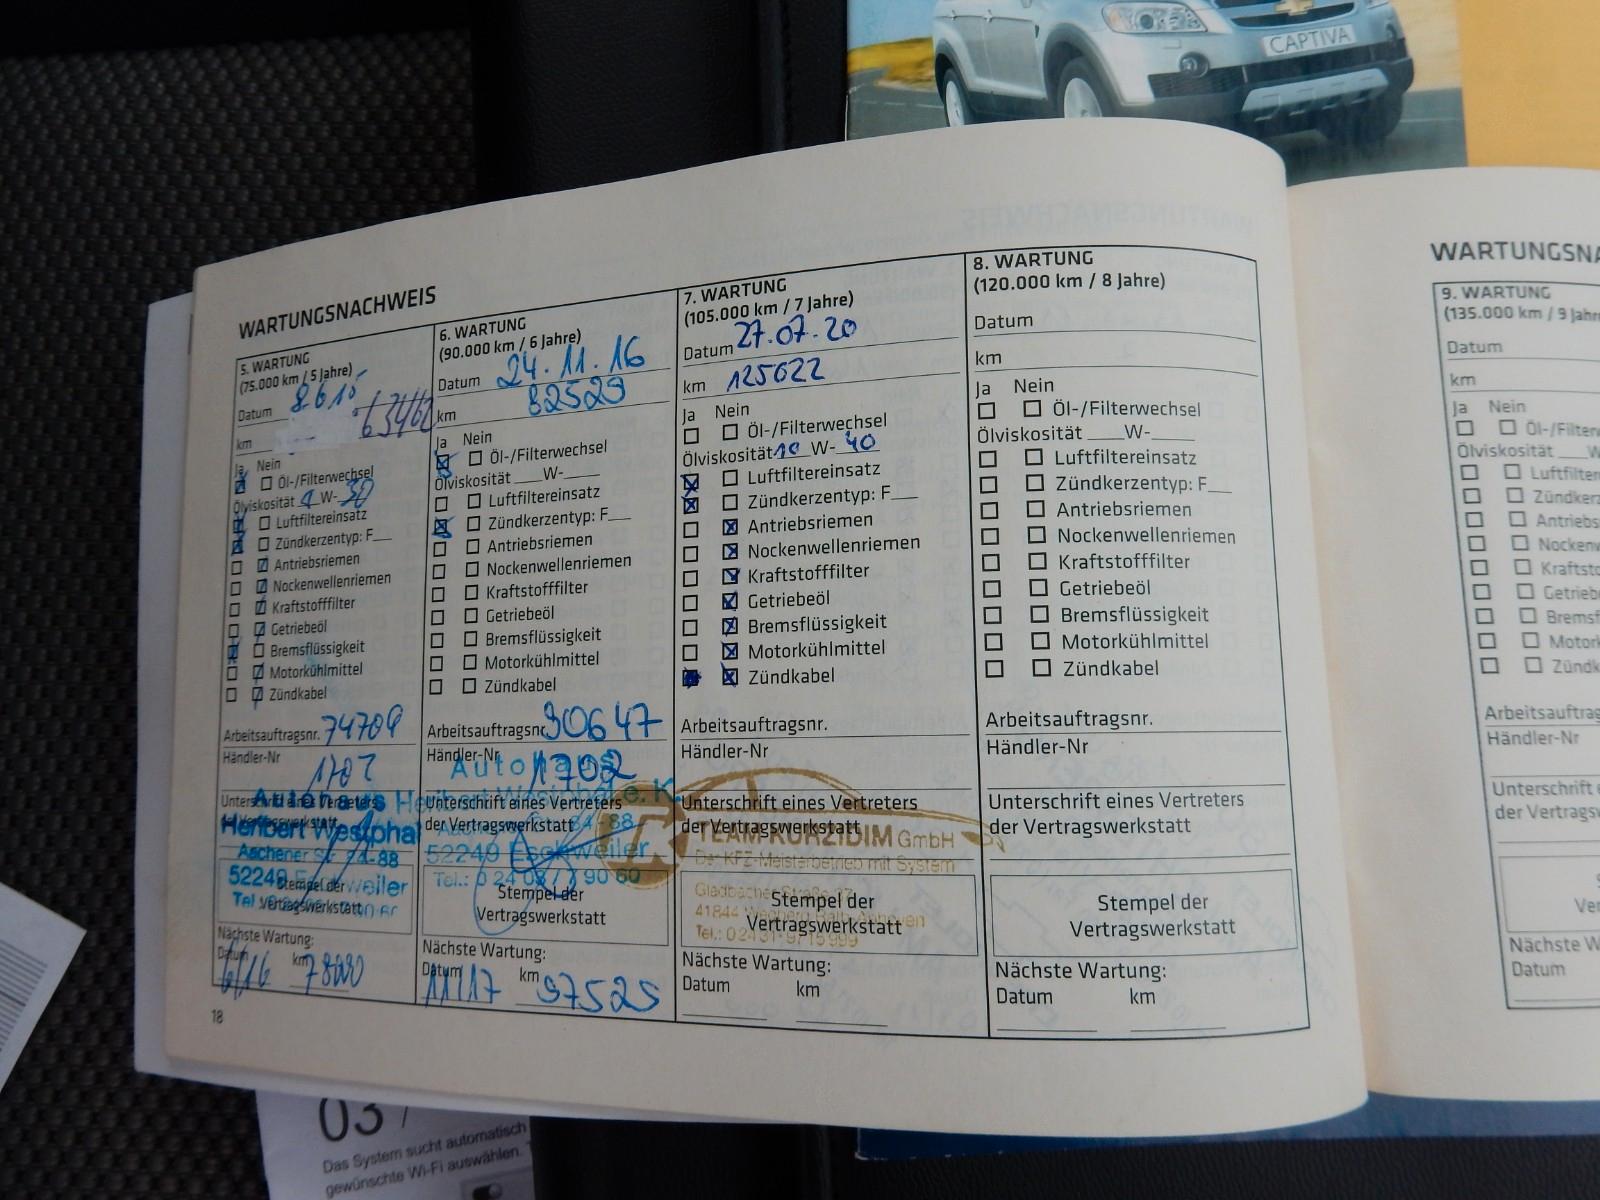 CAPTIVA
WARTUNGSNACHWEIS
5. WARTUNG
(75.000 km / 5 Jahre)
Datum 8.6.15
km 63462
Ja Nein
Öl-/Filterwechsel
Ölviskosität W-30
Luftfiltereinsatz
Zündkerzentyp: F__
Antriebsriemen
Nockenwellenriemen
Kraftstofffilter
Getriebeöl
Bremsflüssigkeit
Motorkühlmittel
Zündkabel
Arbeitsauftragsnr. 74709
Händler-Nr
1702
Unterschrift eines Vertreters
der Vertragswerkstatt
Autohaus
Heribert Westphal
Aachener Str. 84-88
52249 Eschweiler
Stempel der
Vertragswerkstatt
Nächste Wartung:
Datum km
6/16 78000
18
6. WARTUNG
(90.000 km / 6 Jahre)
Datum 24.11.16
km 82529
Ja Nein
Öl-/Filterwechsel
Ölviskosität ___W-____
Luftfiltereinsatz
Zündkerzentyp: F__
Antriebsriemen
Nockenwellenriemen
Kraftstofffilter
Getriebeöl
Bremsflüssigkeit
Motorkühlmittel
Zündkabel
Arbeitsauftragsnr. 30647
Händler-Nr 1702
Autohaus
Heribert Westphal e. K.
Unterschrift eines Vertreters
der Vertragswerkstatt
Aachener Str. 84-88
52249 Eschweiler
Tel.: 0 24 03 / 7 90 60
Stempel der
Vertragswerkstatt
Nächste Wartung:
Datum km
11/17 97525
7. WARTUNG
(105.000 km / 7 Jahre)
Datum 27.07.20
km 125622
Ja Nein
Öl-/Filterwechsel
Ölviskosität 10 W-40
Luftfiltereinsatz
Zündkerzentyp: F__
Antriebsriemen
Nockenwellenriemen
Kraftstofffilter
Getriebeöl
Bremsflüssigkeit
Motorkühlmittel
Zündkabel
Arbeitsauftragsnr.
Händler-Nr
Unterschrift eines Vertreters
der Vertragswerkstatt
TEAM-KURZIDIM GmbH
Der KFZ-Meisterbetrieb mit System
Gladbacher Straße 27
41844 Wegberg Rath-Anhoven
Tel.: 02431-9715999
Stempel der
Vertragswerkstatt
Nächste Wartung:
Datum km
8. WARTUNG
(120.000 km / 8 Jahre)
Datum
km
Ja Nein
Öl-/Filterwechsel
Ölviskosität ____W-_____
Luftfiltereinsatz
Zündkerzentyp: F__
Antriebsriemen
Nockenwellenriemen
Kraftstofffilter
Getriebeöl
Bremsflüssigkeit
Motorkühlmittel
Zündkabel
Arbeitsauftragsnr.
Händler-Nr
Unterschrift eines Vertreters
der Vertragswerkstatt
Stempel der
Vertragswerkstatt
Nächste Wartung:
Datum km
WARTUNGSNA
9. WARTUNG
(135.000 km / 9 Jahr
Datum
km
Ja Nein
Öl-/Filter
Ölviskosität ___W
Luftfilter
Zündker
Antriebs
Nocken
Kraftsto
Getrieb
Bremsf
Motork
Zündk
Arbeitsauftrag
Händler-Nr
Unterschrift
der Vertrags
Nächste Wa
Datum
03 /
Das System sucht automatisch
gewünschte Wi-Fi auswählen.